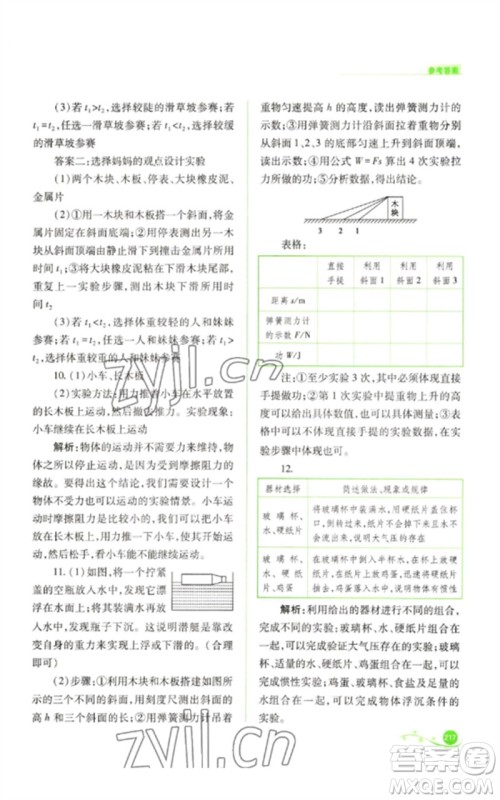 参考答案
(3)若 t₁>t₂,选择较陡的滑草坡参赛;若
t₁=t₂,任选一滑草坡参赛;若 t₁<t₂,选择较缓
的滑草坡参赛
答案二:选择妈妈的观点设计实验
(1)两个木块、木板、停表、大橡皮泥、
金属片
(2)①用木块和木板搭一个斜面,将金
属片固定在斜面底端;②测出木块从木板
斜面顶端由静止滑下到撞击金属片的时间
t₁;③把大橡皮泥粘在下滑木块尾部,
重复上一实验步骤,测出木块下滑时间 t₂
(3)选择体重较轻的人和妹妹参赛;任选一人和妹妹参赛;选择体重较重的人和妹妹参赛
10.(1)小车、长木板
(2)实验方法:用力推小车在水平放置的长
木板上运动,然后撤去力。实验现象:
小车继续在长木板上运动
解析:物体的运动并不需要力来维持,物体
之所以停止运动,是因为受到摩擦阻力的
缘故。我们设计的实验,应是受到摩擦阻力
很小的物体可以运动的实验情景。小车运
动时摩擦阻力较小,可以将小车放在水平
的木板上,用力推小车使小车运动起来,
然后松手,看小车能不能继续运动。
11.(1)如图,将一个拧紧
盖的空瓶放入水中,发现浮在
水面上,在瓶中装满水再放
入水中,下沉。潜艇就是靠
改变自身的重力来实现上浮和下潜的。(合
理即可)
(2)步骤:①用木块和木板搭建如图所
示的三个不同的斜面,并且斜面的最高点
到水平面的高度相同;②用弹簧测力计将
重物匀速提升 h 的高度,读出弹簧测力计的
示数;③用弹簧测力计拉着重物分别从
斜面 1,2,3 的底部匀速拉到斜面顶端,读出示数;④用公式 W=Fs 算出 4 次实验拉
力所做的功;⑤分析数据,得出结论。
木块
3 2 1
表格:
直接手提 利用斜面1 利用斜面2 利用斜面3
距离 s/m
弹簧测力计的示数 F/N
功 W/J
注:①至少实验 3 次,其中必须体现直接
手提做功;②每次实验中提重物上升的高
度可以给出数据,也可以具体测量;③在
表格中没有体现直接手提的实验数据,在
实验步骤中体现也可。
12.
器材选择 简述做法、现象或规律
玻璃杯、水、硬纸片 将玻璃杯中装满水,用硬纸片盖住杯口,倒置过来,纸片不会掉下来,说明大气压的存在
玻璃杯、水、硬纸片、鸡蛋 在玻璃杯中放入半杯水,在杯上盖上硬纸片,在纸片上放上鸡蛋,将纸片迅速弹出,鸡蛋落入杯中,说明物体有惯性
解析:利用给出的器材进行不同的组合,
完成不同的实验:玻璃杯、水、硬纸片组合,
可以完成验证大气压存在的实验;玻璃杯、
水、硬纸片、鸡蛋组合在一起,可以完
成惯性实验;玻璃杯、食盐及足量的
水组合在一起,可以完成物体浮沉条件的
实验。
217
zyjl.cn
zyjl.cn
答案圈
MXQE.COM